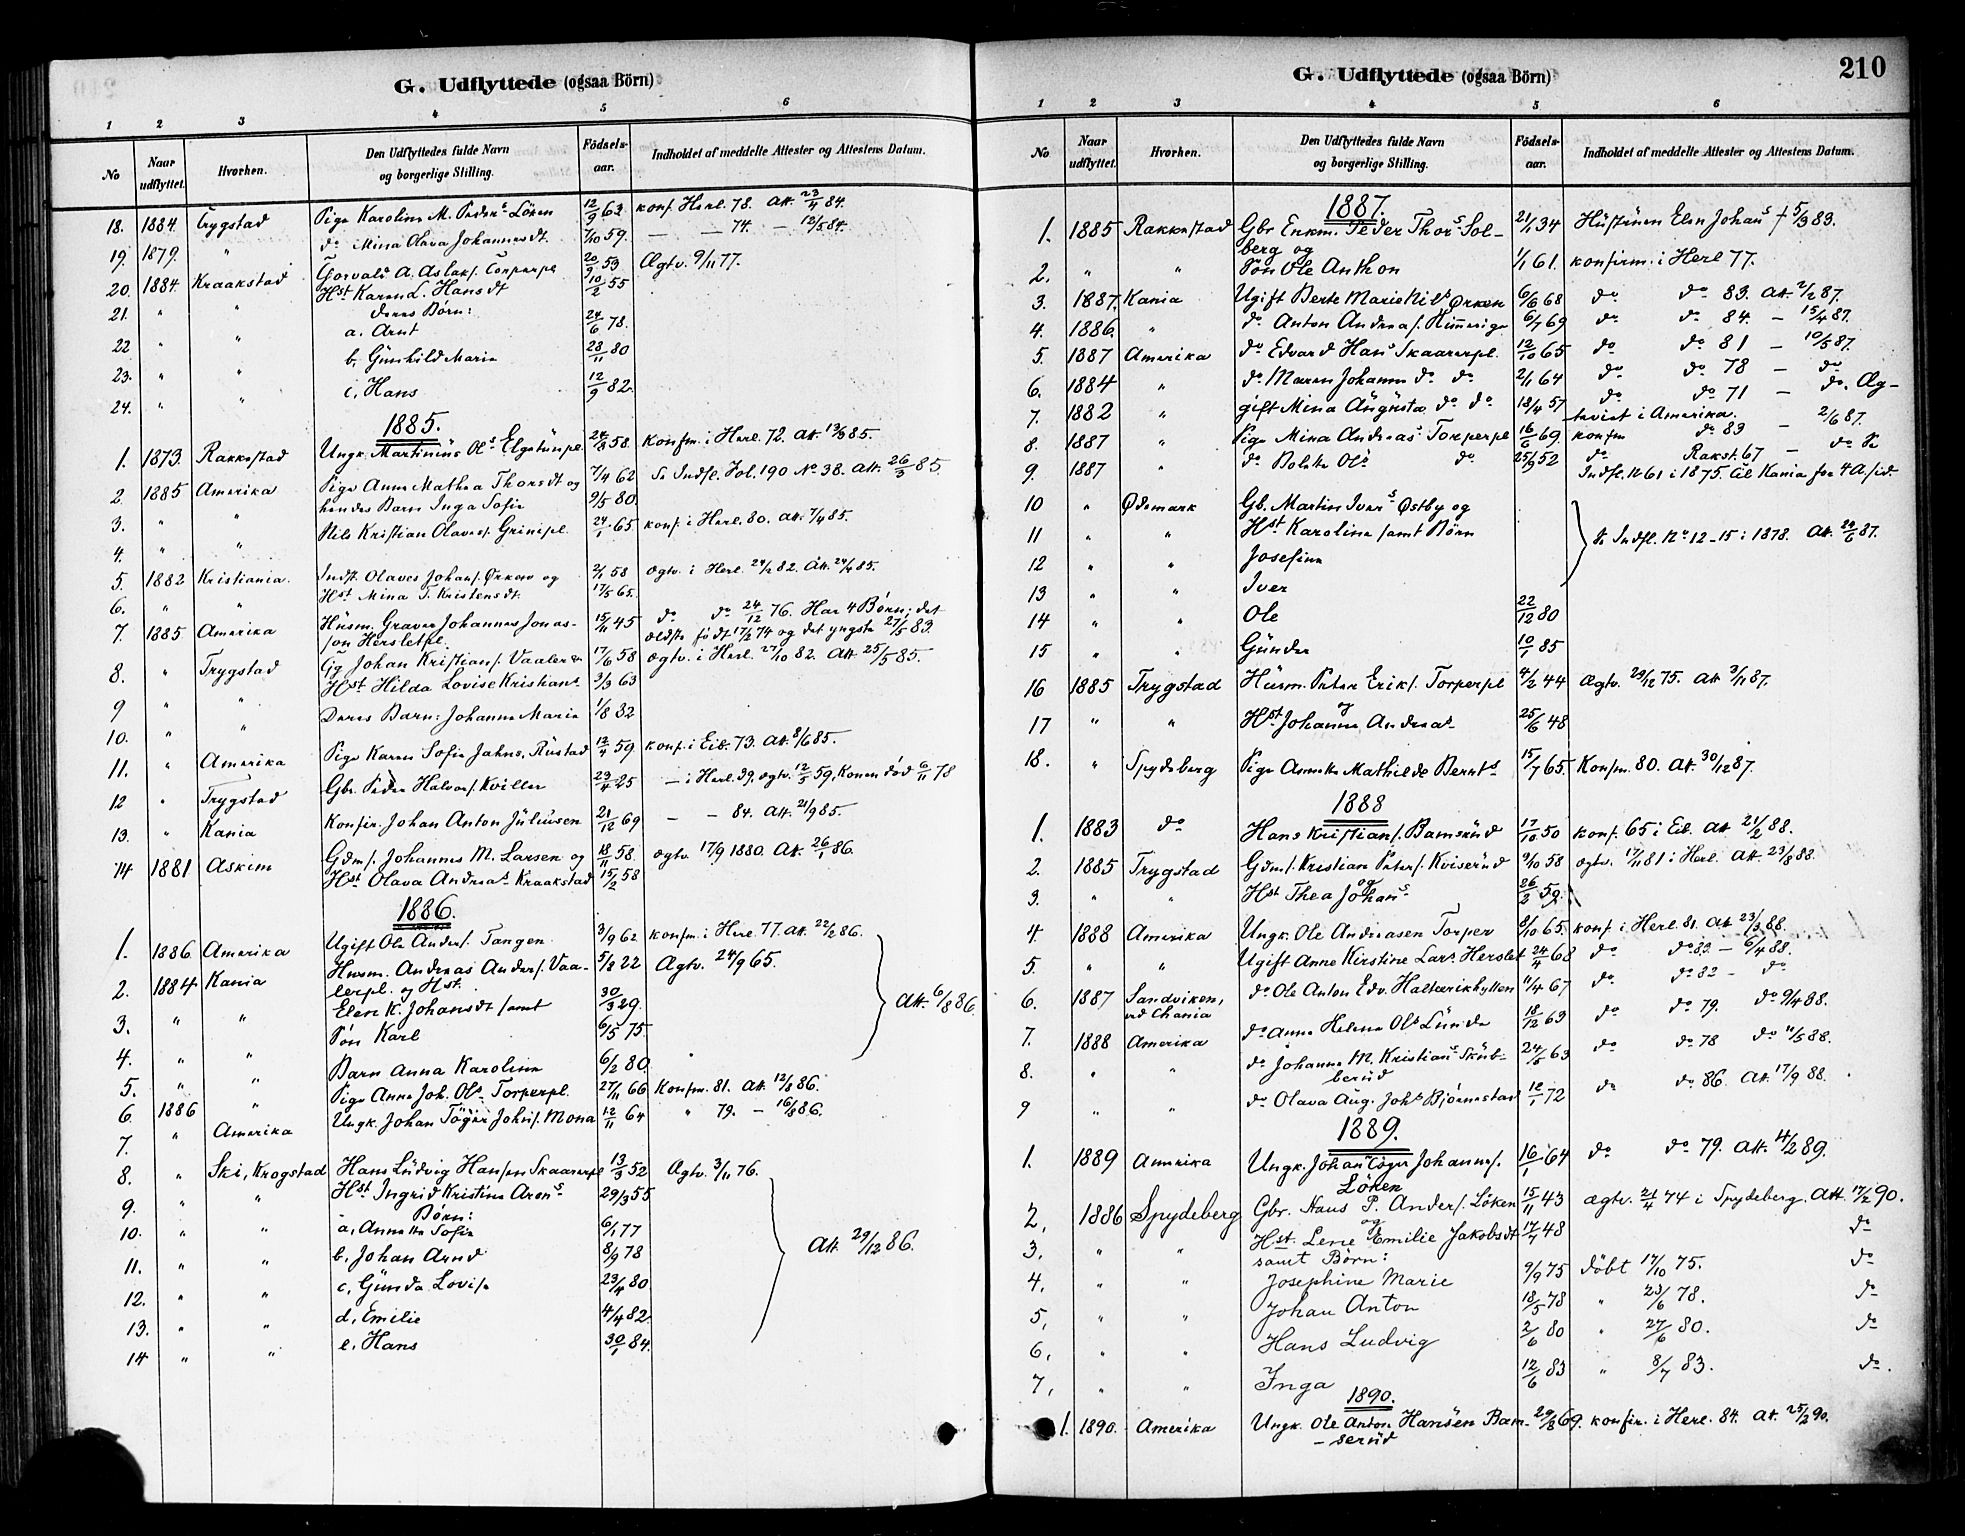 G. Udflyttede (ogsaa Börn)
1 2 3 4 5 6
No Naar udflyttet. Hvorhen. Den Udflyttedes fulde Navn og borgerlige Stilling. Födsels-aar. Indholdet af meddelte Attester og Attestens Datum.
18. 1884. Trygstad Pige Karoline M. Peders Löken 12/9 63. konf. Herl. 78. Att. 23/4 84.
19. 1879. " do Mina Olava Johannesdt. 7/10 59. — — 74. — 12/5 84.
20. 1884. Kraakstad Torvald A. Aslaks. Torperpl 20/9 53 Ægtv. 9/11 77.
21. " " Hst Karen L. Hansdt 10/2 55
deres Börn:
22 " " a. Arnt 24/6 78.
23. " " b. Gunhild Marie 28/11 80
24. " " c. Hans 12/9 82.
1885.
1. 1873. Rakkestad Ungk. Martinius Ols Elgetunpl. 58. konfm. i Herl. 72. Att. 13/3 85.
2. 1885 Amerika Pige Anne Mathea Thorsdt og 7/4 62 Se Indfl. Fol. 190 No 38. Att. 26/3 85.
3. " " hendes Barn Inga Sofie 9/5 80.
4. " " Nils Kristian Olaves. Grinipl. 24/1 65 konf. i Herl. 80. Att. 7/4 85.
5. 1882 Kristiania. Indst. Olaves Johans. Örken og 2/1 58 ægtv. i Herl. 24/2 82. Att. 24/4 85.
6. " " Hst Mina T. Kristensdt. 17/5 65.
7. 1885 Amerika Husm. Graver Johannes Jonas- 15/11 45 do do 24/12 76. Har 4 Börn; det
sen Hersletpl. ældste födt 17/2 74 og det yngste 27/5 83.
8. " Trygstad Gg Johan Kristians. Vaaler 17/6 58 ægtv. i Herl. 27/10 82. Att. 25/5 85.
9 " " Hst Hilda Lovise Kristians 3/3 63
10. " " Deres Barn: Johanne Marie 1/8 82
11. " Amerika Pige Karen Sofie Jahns. Rustad 12/4 59 konf. i Eib. 73. Att. 8/6 85.
12 " Trygstad Gbr. Peder Halvors. Kviller 23/4 25 — i Herl. 39, ægtv. 12/5 59, Konen död 6/11 78
13. " Kania Konfir. Johan Anton Juliusen 21/12 69 — — 84. Att. 21/9 85.
14 1881 Askim Gdms. Johannes M. Larsen og 18/11 58. ægtv. 17/9 1880. Att. 26/1 86.
Hst Olava Andreas Kraakstad 15/2 58
1886.
1. 1886. Amerika Ugift Ole Anders. Tangen 3/9 62 konfm. i Herl. 77. Att. 22/2 86.
2. 1884 Kania Husm. Andreas Anders. Vaa- 5/8 22 Ægtv. 24/9 65.
lerpl. og Hst.
3. " " Elen K. Johansdt samt 30/3 29. Att. 6/8 86.
4. " " Sön Karl 6/5 75.
5. " " Barn Anna Karoline 6/2 80.
6. 1886 " Pige Anne Joh. Ols Torperpl. 27/11 66 Konfm. 81. Att. 12/8 86.
7. " Amerika Ungk. Johan Töger Johs. Mona 12/11 64 " 79. — 16/8 86.
8. " Ski, Krogstad Hans Ludvig Hansen Skaarerpl 13/3 52 Ægtv. 3/11 76.
9. " " Hst Ingrid Kristine Arens 29/3 55.
Börn:
10. " " a, Annette Sofie 6/1 77
11. " " b. Johan Arnd 8/9 78 Att. 29/12 86.
12. " " c, Gunda Lovise 23/4 80
13. " " d, Emilie 4/4 82.
14 " " e. Hans 30/1 84.
G. Udflyttede (ogsaa Börn)
210
1 2 3 4 5 6
No Naar udflyttet. Hvorhen. Den Udflyttedes fulde Navn og borgerlige Stilling. Födsels-aar. Indholdet af meddelte Attester og Attestens Datum.
1887.
1. 1885 Rakkestad Gbr Enkm. Peder Thors Sol- 21/1 34 Hustruen Elen Johans † 5/3 83.
berg og
2. " " Sön Ole Anthon 1/1 61. konfirm. i Herl 77.
3. 1887. Kania Ugift Berte Marie Nils Örken 6/6 68 do do 83. Att. 2/2 87.
4. 1886. " do Anton Andreas. Rimerige 6/7 69 do do 84. — 15/4 87.
5. 1887 Amerika do Edvard Hans Skaarerpl. 12/10 65 do do 81 — 10/5 87.
6. 1884 " do Maren Johanne do do 2/1 64 do do 78 — do
7. 1882 " gift Mina Augusta do do 18/4 57 do do 71 — do. Æg-
teviet i Amerika.
8. 1887 " Pige Mina Andreas Torperpl 16/6 69. konfm do 83 — 2/6 87.
9. 1887 " do Bolette Ols do 25/9 52 do Rakst. 67 — do Se
Indfl. N 61 i 1875. til Kania for 4 A. sid.
10 " Ödemark Gb. Martin Ivers Östby og
11 " " Hst Karoline samt Börn Se Indfl. No 12-15 i 1878. Att. 24/6 87.
12 " " Josefine
13 " " Iver
14 " " Ole 22/12 80
15 " " Gunder 10/1 85
16 1885 Trygstad Husm. Peter Eriks. Torperpl 4/2 44 Ægtv. 29/12 75. Att 3/11 87.
og
17 " " Hst Johanne Andreas 25/6 48
18. " Spydeberg Pige Annette Mathilde Bernts 15/7 65. Konfm. 80. Att. 30/12 87.
1888
1. 1883 do Hans Kristians. Bamsrud 17/10 50 konf. 65 i Eib. Att. 21/2 88.
2. 1885 Trygstad Gdms. Kristian Peters. Kviserud 9/10 58 ægtv. 17/11 81 i Herl. Att. 23/8 88.
og
3. " " Hst Thea Johans 26/2 59.
4. 1888 Amerika Ungk. Ole Andreasen Torper 8/10 65. konf. i Herl. 81. Att 23/3 88.
5. " " Ugift Anne Kirstine Lars Herslet 24/4 68 do do 83 — 6/4 88.
6. 1887 Sandviken, do Ole Anton Edv. 11/4 67 do do 82 — do
ved Chania
7. 1888 Amerika do Anne Helene Ols Lunde 18/12 63 do do 79. do 9/4 88.
8. " " do Johanne M. Kristians Skub- 24/5 63 do do 78 do 11/5 88.
berud
9 " " do Olava Aug. Johs Björnestad 12/1 72 do do 86. Att. 17/9 88.
1889.
1. 1889 Amerika Ungk. Johan Töger Johanns. 16/1 64 do do 79. Att. 14/2 89.
Löken
2, 1886 Spydeberg Gbr. Hans P. Anders. Löken 15/11 43 ægtv. 21/4 74 i Spydeberg. Att. 17/2 90.
og
3. " " Hst. Lene Emilie Jakobsdt 17/7 48 do
samt Börn:
4, " " Josephine Marie 9/9 75 döbt 17/10 75. do
5, " " Johan Anton 18/5 78 " 23/6 78. do
6, " " Hans Ludvig 2/6 80 " 27/6 80. do
7, " " Inga 12/6 83 " 8/7 83. do.
1890.
1. 1890. Amerika Ungk. Ole Anton Hansen Bam- 29/8 69. konfir. i Herl. 84. Att. 25/2 90.
-serud